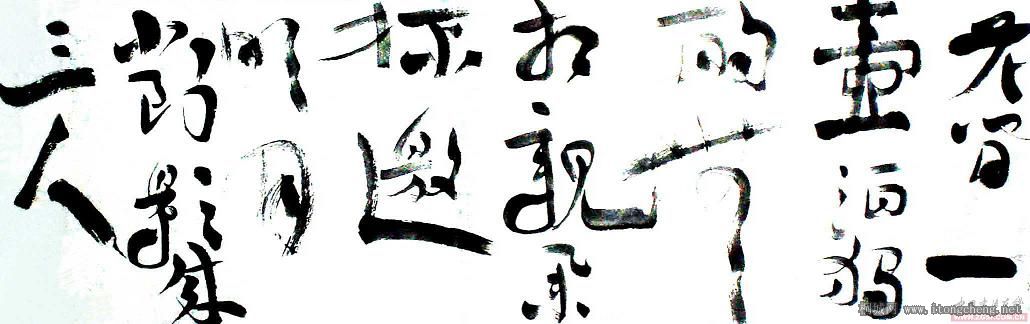 花间一
壺酒独
酌无
相親举
杯邀
明月
對影成
三人
www.itongcheng.net